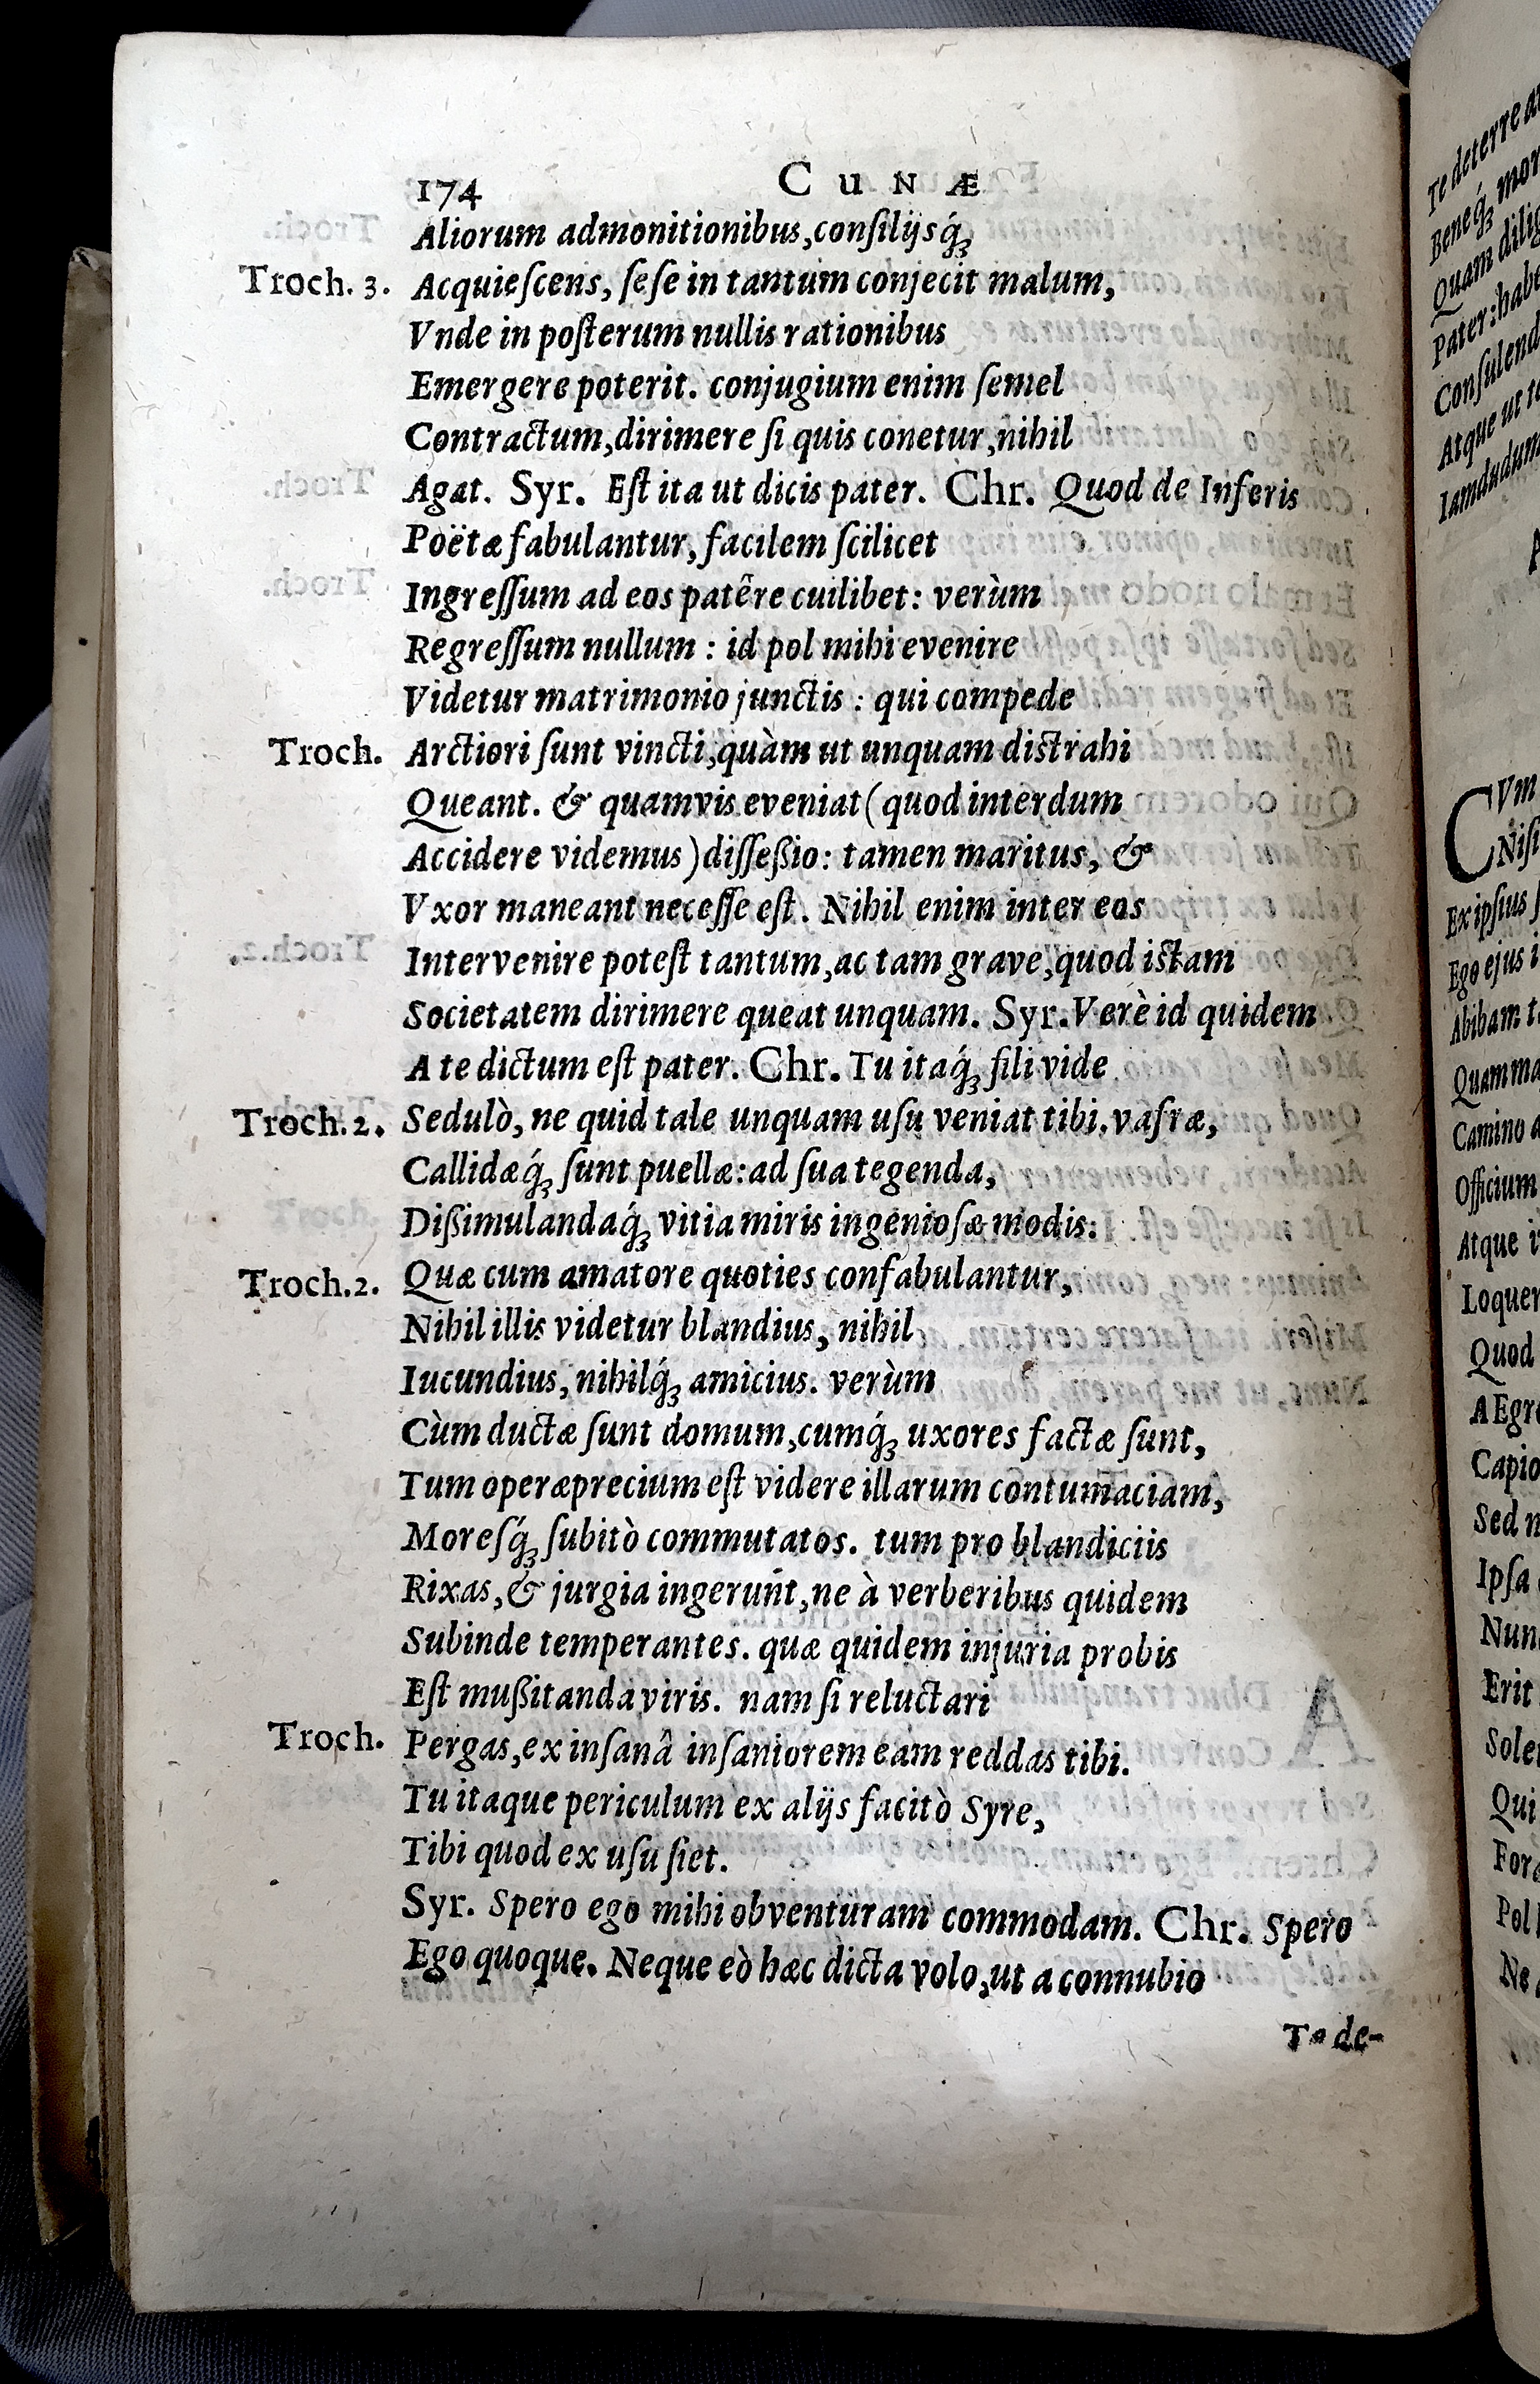 174 CUNÆ
Aliorum admonitionibus, conſilijsq́ꝫ
Troch. 3. Acquieſcens, ſeſe in tantum conjecit malum,
Vnde in poſterum nullis rationibus
Emergere poterit. conjugium enim ſemel
Contractum, dirimere ſi quis conetur, nihil
Agat. Syr. Eſt ita ut dicis pater. Chr. Quod de Inferis
Poëtæ fabulantur, facilem ſcilicet
Ingreſſum ad eos patêre cuilibet: verùm
Regreſſum nullum : id pol mihi evenire
Videtur matrimonio junctis : qui compede
Troch. Arctiori ſunt vincti, quàm ut unquam diſtrahi
Queant. & quamvis eveniat (quod interdum
Accidere videmus) diſſeßio: tamen maritus, &
Vxor maneant neceſſe eſt. Nihil enim inter eos
Intervenire poteſt tantum, ac tam grave, quod iſtam
Societatem dirimere queat unquam. Syr. Verè id quidem
A te dictum eſt pater. Chr. Tu itaq́ꝫ fili vide
Troch. 2. Sedulò, ne quid tale unquam uſu veniat tibi. vafræ,
Callidæq́ꝫ ſunt puellæ: ad ſua tegenda,
Dißimulandaq́ꝫ vitia miris ingenioſæ modis:
Troch. 2. Quæ cum amatore quoties confabulantur,
Nihil illis videtur blandius, nihil
Iucundius, nihilq́ꝫ amicius. verùm
Cùm ductæ ſunt domum, cumq́ꝫ uxores factæ ſunt,
Tum operæprecium eſt videre illarum contumaciam,
Moreſq́ꝫ ſubitò commutatos. tum pro blandiciis
Rixas, & jurgia ingerunt, ne à verberibus quidem
Subinde temperantes. quæ quidem injuria probis
Eſt mußitanda viris. nam ſi reluctari
Troch. Pergas, ex inſanâ inſaniorem eam reddas tibi.
Tu itaque periculum ex alijs facitò Syre,
Tibi quod ex uſu ſiet.
Syr. Spero ego mihi obventuram commodam. Chr. Spero
Ego quoque. Neque eò hæc dicta volo, ut a connubio
Te de-
Te deterre
Beneq́ꝫ
Quam
Pater: habe
Conſulend
Atque ut
Iamdudum
CVm
Niſi
Ex ipſius
Ego ejus
Abibam
Quam
Camino
Officium
Atque
Loquer
Quod
AEgr
Capio
Sed
Ipſa
Nun
Erit
Sole
Qui
For
Pol
Ne